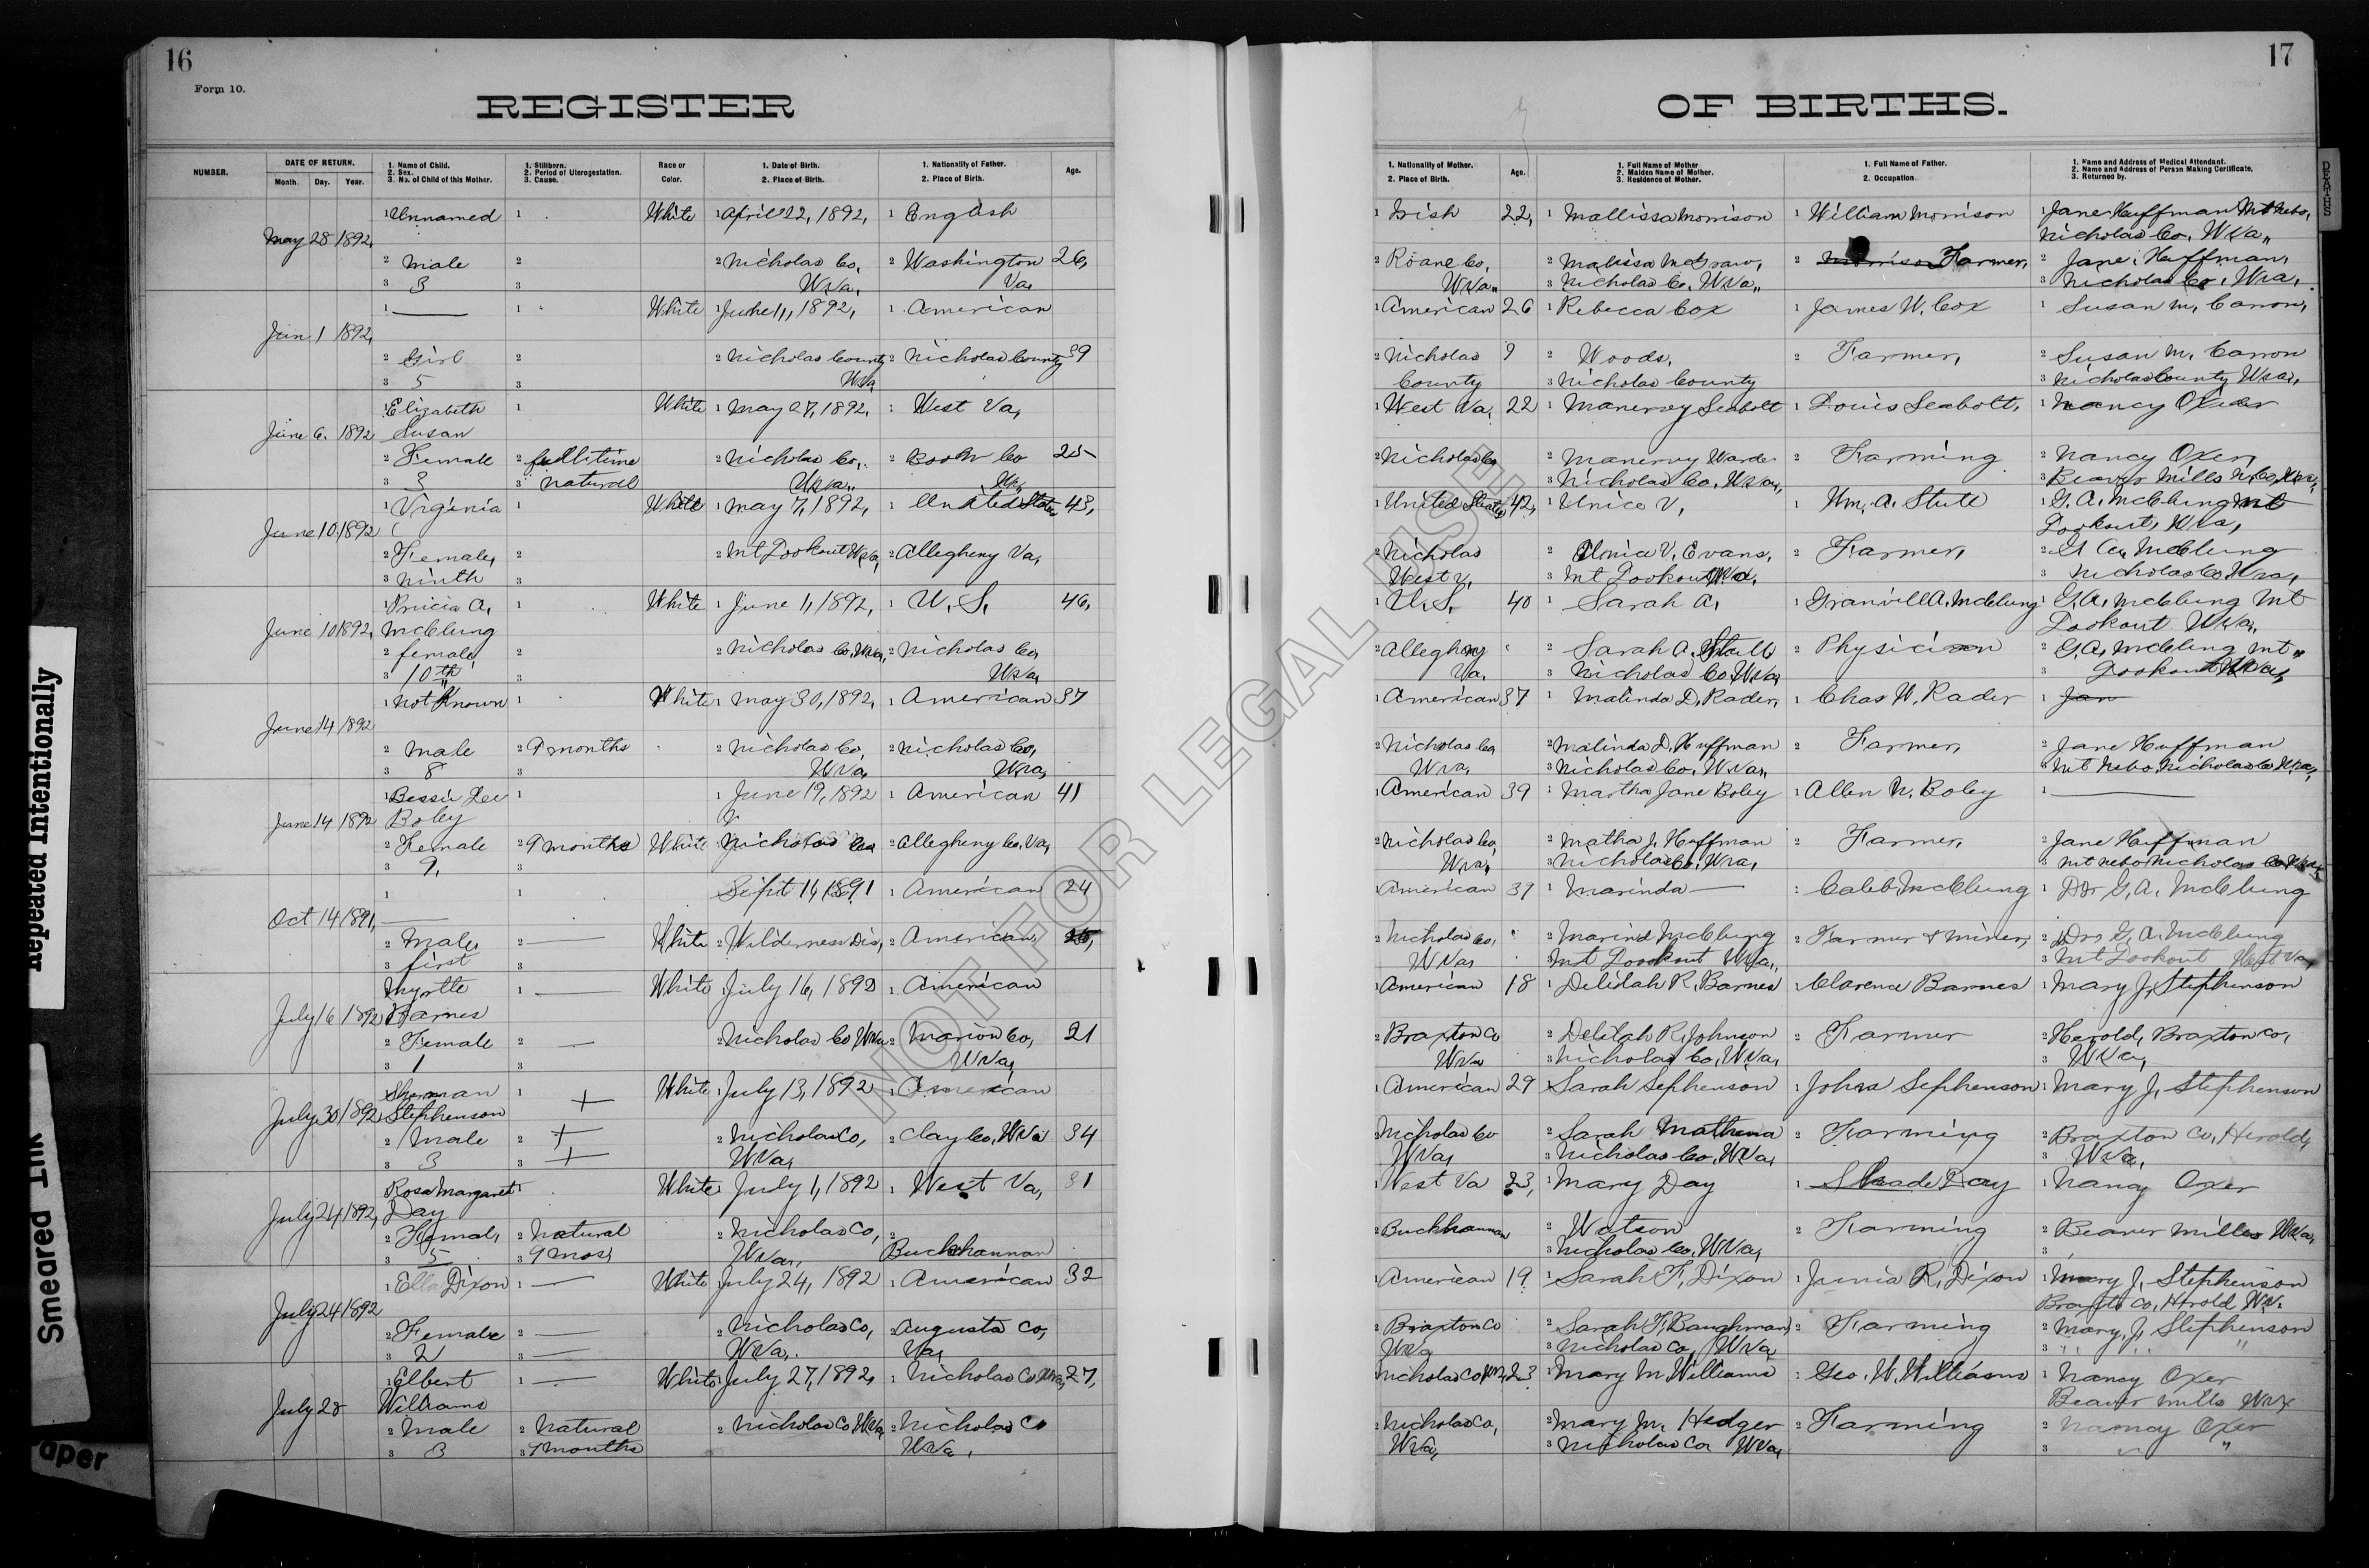 16
Form 10.
REGISTER
NUMBER.
DATE OF RETURN.
Month. Day. Year.
1. Name of Child.
2. Sex.
3. No. of Child of this Mother.
1. Stillborn.
2. Period of Uterogestation.
3. Cause.
Race or Color.
1. Date of Birth.
2. Place of Birth.
1. Nationality of Father.
2. Place of Birth.
Age.
May 28 1892,
1 Unnamed 1 White 1 April 22, 1892, 1 English
2 Male 2 2 Nicholas Co, 2 Washington 26,
3 3 3 W Va, Va,
Jun 1 1892,
1 — 1 White 1 June 1, 1892, 1 American
2 Girl 2 2 Nicholas County 2 Nicholas County 39
3 5 3 W Va
June 6. 1892
1 Elizabeth 1 White 1 May 27, 1892, 1 West Va,
Susan
2 Female 2 full time 2 Nicholas Co,. 2 Co 25
3 3 3 natural W Va,,
June 10 1892
1 Virginia 1 White 1 May 7, 1892, 1 United States 43,
2 Female, 2 2 Mt Lookout W Va, 2 Allegheny Va,
3 Ninth 3
June 10 1892,
1 A, 1 White 1 June 1, 1892, 1 U. S, 46,
McClung
2 female 2 2 Nicholas Co. W Va, 2 Nicholas Co,
3 10th 3 W Va,
June 14 1892
1 Not Known 1 White 1 May 30, 1892, 1 American 37
2 Male 2 9 months 2 Nicholas Co, 2 Nicholas Co,
3 8 3 W Va, W Va,
June 14 1892
1 Bessie Lee 1 1 June 19, 1892 1 American 41
Boley
2 Female 2 9 months White 2 Nicholas Co 2 Allegheny Co. Va,
3 9, 3
Oct 14 1891,
1 1 Sept 1, 1891 1 American 24
—
2 Male, 2 — White 2 Wilderness Dis, 2 American,
3 first 3
July 16 1892
1 Myrtle 1 — White 1 July 16, 1892 1 American
Barnes
2 Female 2 — 2 Nicholas Co W Va 2 Marion Co, 21
3 1 3 W Va,
July 30 1892,
Sherman 1 + White 1 July 13, 1892 1 American
Stephenson
2 Male 2 + 2 Nicholas Co, 2 Clay Co, W Va 34
3 3 3 + W Va,
July 24 1892,
Rosa Margaret 1 White 1 July 1, 1892 1 West Va, 31
Day
2 Femal, 2 Natural 2 Nicholas Co, 2
3 5 3 9 mos, W Va,. Buckhannan
July 24 1892
1 Ella Dixon 1 — White July 24, 1892 1 American 32
2 Female 2 — 2 Nicholas Co, 2 Augusta Co,
3 2 3 — W Va,. Va,
July 28
1 Elbert 1 — White 1 July 27, 1892, 1 Nicholas Co W Va, 27,
Williams
2 Male 2 Natural 2 Nicholas Co W Va, 2 Nicholas Co
3 3 3 9 months W Va,
17
OF BIRTHS.
1. Nationality of Mother.
2. Place of Birth.
Age.
1. Full Name of Mother
2. Maiden Name of Mother.
3. Residence of Mother.
1. Full Name of Father.
2. Occupation.
1. Name and Address of Medical Attendant.
2. Name and Address of Person Making Certificate.
3. Returned by.
1 Irish 22, 1 Mallissa Morrison 1 William Morrison 1 Jane Huffman Mt Nebo,
Nicholas Co, W Va,,
2 Roane Co, 2 Malissa McGraw, 2 Farmer, 2 Jane Huffman,
W Va,, 3 Nicholas Co, W Va,, 3 Nicholas Co, W Va,
1 American 26 1 Rebecca Cox 1 James W. Cox 1 Susan M, Carron,
2 Nicholas 2 Woods, 2 Farmer, 2 Susan M. Carron
County 3 Nicholas County 3 Nicholas County W Va,
1 West Va, 22 1 Manervy Seabolt 1 Louis Seabolt, 1 Nancy Oxer
2 Nicholas Co 2 Manervy Warde 2 Farming 2 Nancy Oxer,
3 Nicholas Co. W Va, 3 Beaver Mills N. Co, W Va,
1 United States 42, 1 Unice V, 1 Wm, A. Stute 1 G. A. McClung Mt
Lookout, W Va,
2 Nicholas 2 Unice V. Evans, 2 Farmer, 2 G. A. McClung
West V, 3 Mt Lookout W Va. 3 Nicholas Co W Va,
1 U. S, 40 1 Sarah A, 1 Granvill A. McClung 1 G. A, McClung Mt
Lookout W Va,
2 Allegheny 2 Sarah A. Stull 2 Physician 2 G. A, McClung Mt,,
Va. 3 Nicholas Co. W Va, 3 Lookout W Va,
1 American 37 1 Malinda D, Rader, 1 Chas W. Rader 1 Jan
2 Nicholas Co, 2 Malinda D. Huffman 2 Farmer, 2 Jane Huffman
W Va, 3 Nicholas Co. W Va,, 3 Mt Nebo, Nicholas Co W Va,
1 American 39 1 Martha Jane Boley 1 Allen N. Boley 1 —
2 Nicholas Co, 2 Matha J. Huffman 2 Farmer, 2 Jane Huffman
W Va, 3 Nicholas Co, W Va, 3 Mt Nebo Nicholas Co W Va
1 American 1 Marinda — 1 Caleb McClung 1 Dr G. A. McClung
2 Nicholas Co, 2 Marind McClung 2 Farmer & Miner, 2 Dr, G. A. McClung
W Va, Mt Loookout W Va,. 3 Mt Lookout West Va,
1 American 18 1 Delilah R. Barnes 1 Clarence Barnes 1 Mary J, Stephenson
2 Braxton Co 2 Delilah R. Johnson 2 Farmer 2 Herold, Braxton Co,
W Va 3 Nicholas Co, W Va, 3 W Va,
1 American 29 Sarah Sephenson 1 Sephenson 1 Mary J, Stephenson
2 Nicholas Co 2 Sarah Mathena 2 Farming 2 Braxton Co, Herold,
W Va, 3 Nicholas Co, W Va, 3 W Va,
1 West Va 23, 1 Mary Day 1 Day 1 Nancy Oxer
2 Buckhannan 2 Watson 2 Farming 2 Beaver Mills W Va,
3 Nicholas Co, W Va, 3
1 American 19 1 Sarah F, Dixon 1 Junia R, Dixon 1 Mary J, Stephenson
Co, Herold W V.
2 Braxton Co 2 Sarah F, Baughman, 2 Farming 2 Mary, J, Stephenson
W Va 3 Nicholas Co, W Va, 3 " " "
Nicholas Co W Va, 23 1 Mary M. Williams 1 Geo. W. Williams 1 Nancy Oxer
Beaver Mills W Va
2 Nicholas Co, 2 Mary M, Hedger 2 Farming 2 Nancy Oxer
W Va, 3 Nicholas Co, W Va, 3 "
NOT FOR LEGAL USE
Repeated Intentionally
Smeared Ink
aper
DEATHS